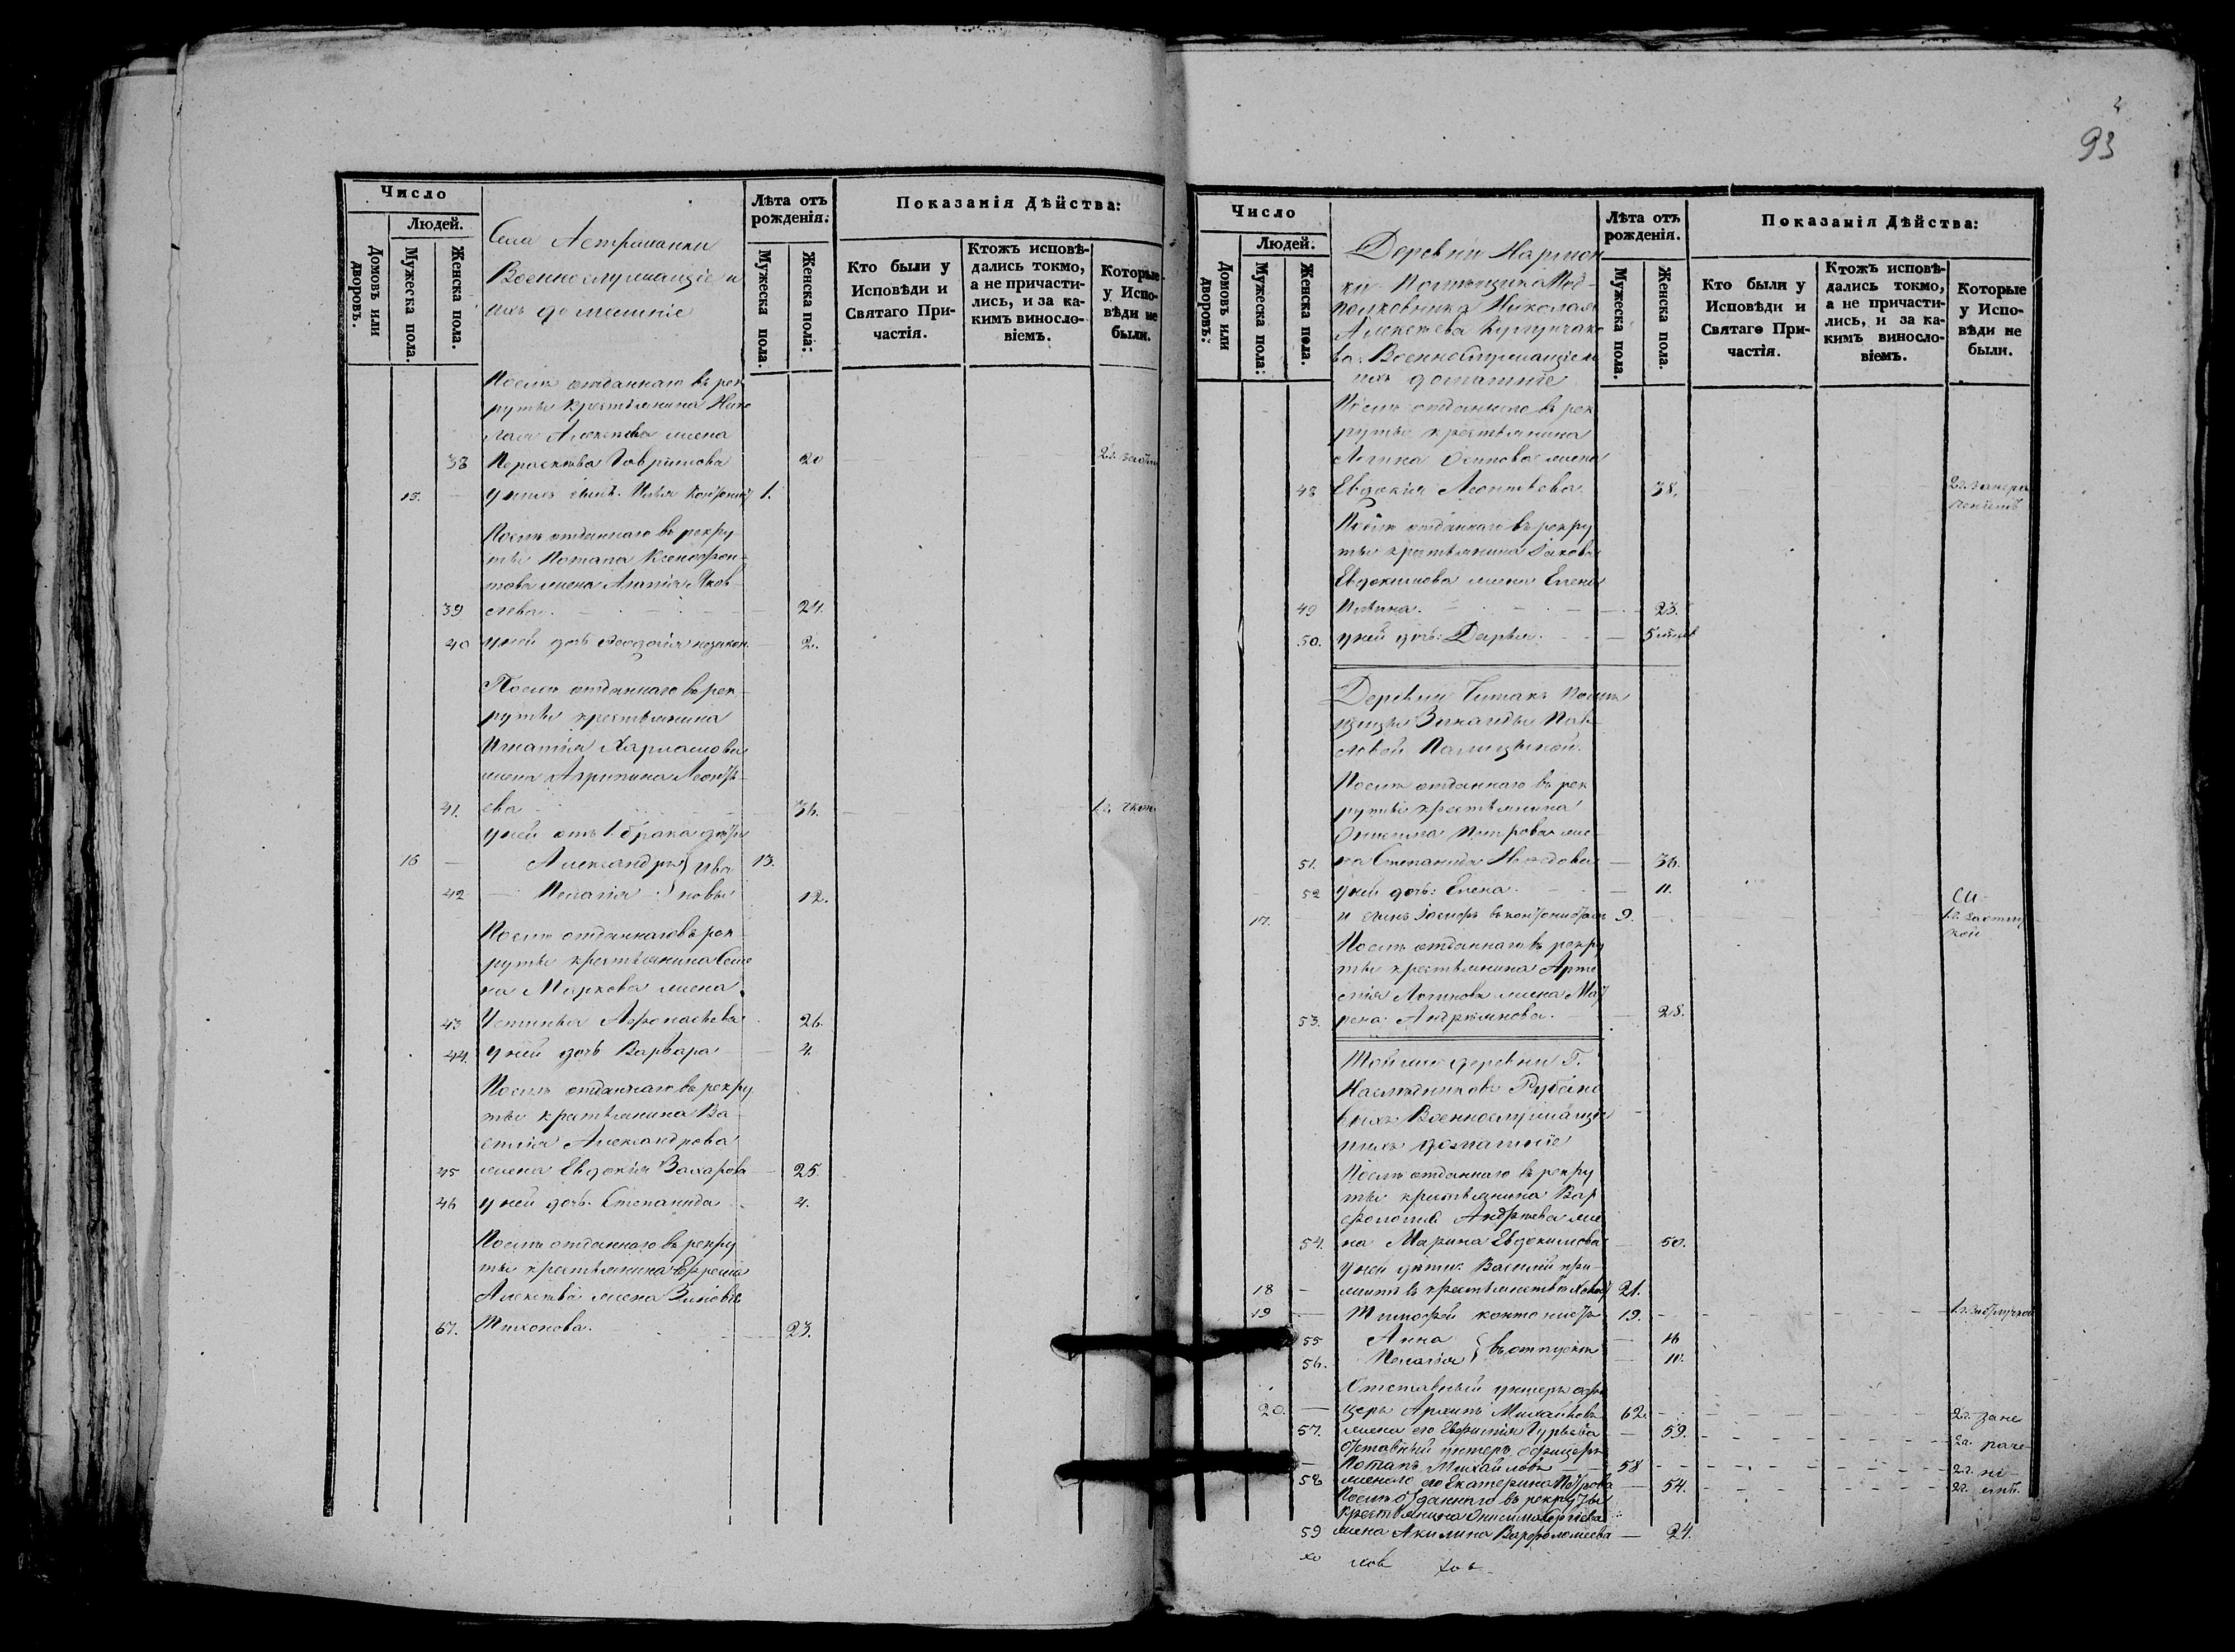 Число
Людей.
Домовъ или дворовъ.
Мужеска пола.
Женска пола.
Села Астраманки
Военнослужащіе и
ихъ домашніе
Лѣта отъ рожденія.
Мужеска пола.
Женска пола.
Показанія Дѣйства:
Кто были у Исповѣди и Святаго Причастія.
Ктожъ исповѣдались токмо, а не причастились, и за какимъ винословіемъ.
Которые у Исповѣди не были.
Послѣ отданнаго въ рек
руты крестьянина Нико
лая Алексѣева жена
38 Параскева Гаврилова 20
15. у нихъ сынъ Илья 1.
Послѣ отданнаго въ рекру
ты Потапа Ксенофон-
това жена Агапія Яков-
39 лева. 24.
40 у ней дочь Ѳеодосія незакон. 2.
Послѣ отданнаго въ рек-
руты крестьянина
Игнатія Харламова
жена Агрипина Леонть-
41. ева 36.
у ней отъ 1 брака дѣти
16 Александръ Ива 13.
42 Пелагія новы 12.
Послѣ отданнаго въ рек-
руты крестьянина Семе
на Маркова жена
43 Устинья Афонасьева 26.
44. у ней дочь Варвара 4.
Послѣ отданнаго въ рекру
ты крестьянина Ва-
силія Александрова
45 жена Евдокія Захарова 25.
46 у ней дочь Степанида 4.
Послѣ отданнаго въ рекру
ты крестьянина Ефрема
Алексѣева жена Зиновія
67. Тихонова. 23.
93
Число
Людей.
Домовъ или дворовъ.
Мужеска пола.
Женска пола.
Деревни Нармон
ки Помѣщика Под-
полковника Николая
Алексѣева
ва. Военнослужащіе и
ихъ домашніе
Лѣта отъ рожденія.
Мужеска пола.
Женска пола.
Показанія Дѣйства:
Кто были у Исповѣди и Святаго Причастія.
Ктожъ исповѣдались токмо, а не причастились, и за какимъ винословіемъ.
Которые у Исповѣди не были.
Послѣ отданнаго въ рек
руты крестьянина
Логина Осипова жена
48 Евдокія Леонтьева 38.
Послѣ отданнаго въ рекру
ты крестьянина Іакова
Евдокимова жена Елена
49 Ильина. 23.
50. у ней дочь: Дарья. 5
Деревни Читакъ Помѣ
щицы Зинаиды Пав
ловой Палицыной.
Послѣ отданнаго въ рек
руты крестьянина
Онисима Петрова же
51. на Степанида Нефедова 36.
52 у ней дочь: Елена. 11.
17. и сынъ Іосифъ въ кантонистахъ 9.
Послѣ отданнаго въ рекру
ты крестьянина Арте
мія Логинова жена Мат
53. рена Андреянова. 28.
Той же деревни Г.
Наслѣдниковъ
выхъ Военнослужащіе
и ихъ домашніе
Послѣ отданнаго въ рекру
ты крестьянина Вар
фоломея Андреева же
54. на Марина Евдокимова 50.
у ней дѣти: Василій при-
18 21.
19 Тимофей кантонистъ 19. 1 г.
55 Анна 16
56. Пелагія въ отпускѣ 11.
Отставный унтеръ офи
20. церъ Архипъ Михайловъ 62. 2 г.
57. жена его Евфимія Гурьева 59. 2 г.
Отставный унтеръ офицеръ
Потапъ Михайловъ 58 2 г.
58 жена его Екатерина Петрова 54. 2 г.
Послѣ отданнаго въ рекруты
крестьянина Онисима Сергѣева
59 жена Акилина Варфоломеева 24.